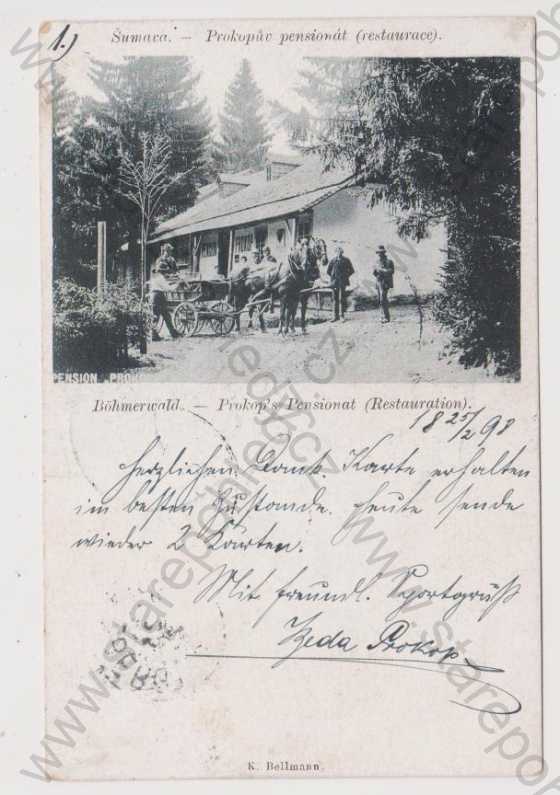 1.)
Šumava. — Prokopův pensionát (restaurace).
PENSION PROK
Böhmerwald. — Prokop's Pensionat (Restauration).
18 25/2 98
Herzlichen Dank. Karte erhalten
im besten Zustande. Heute sende
wieder 2 Karten.
Mit freundl. Sportgruß
Prokop
K. Bellmann.
www.starepohledy.cz